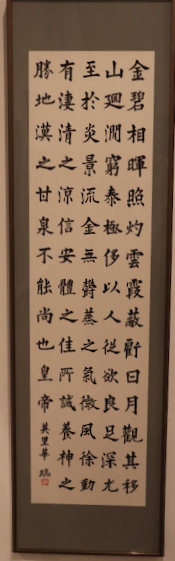 金碧相暉照灼雲霞蔽虧日月觀其移
山廻澗窮泰極侈以人從欲良足深尤
至於炎景流金無鬱蒸之氣微風徐動
有淒清之涼信安體之佳所誠養神之
勝地漢之甘泉不能尚也皇帝 英里華 臨